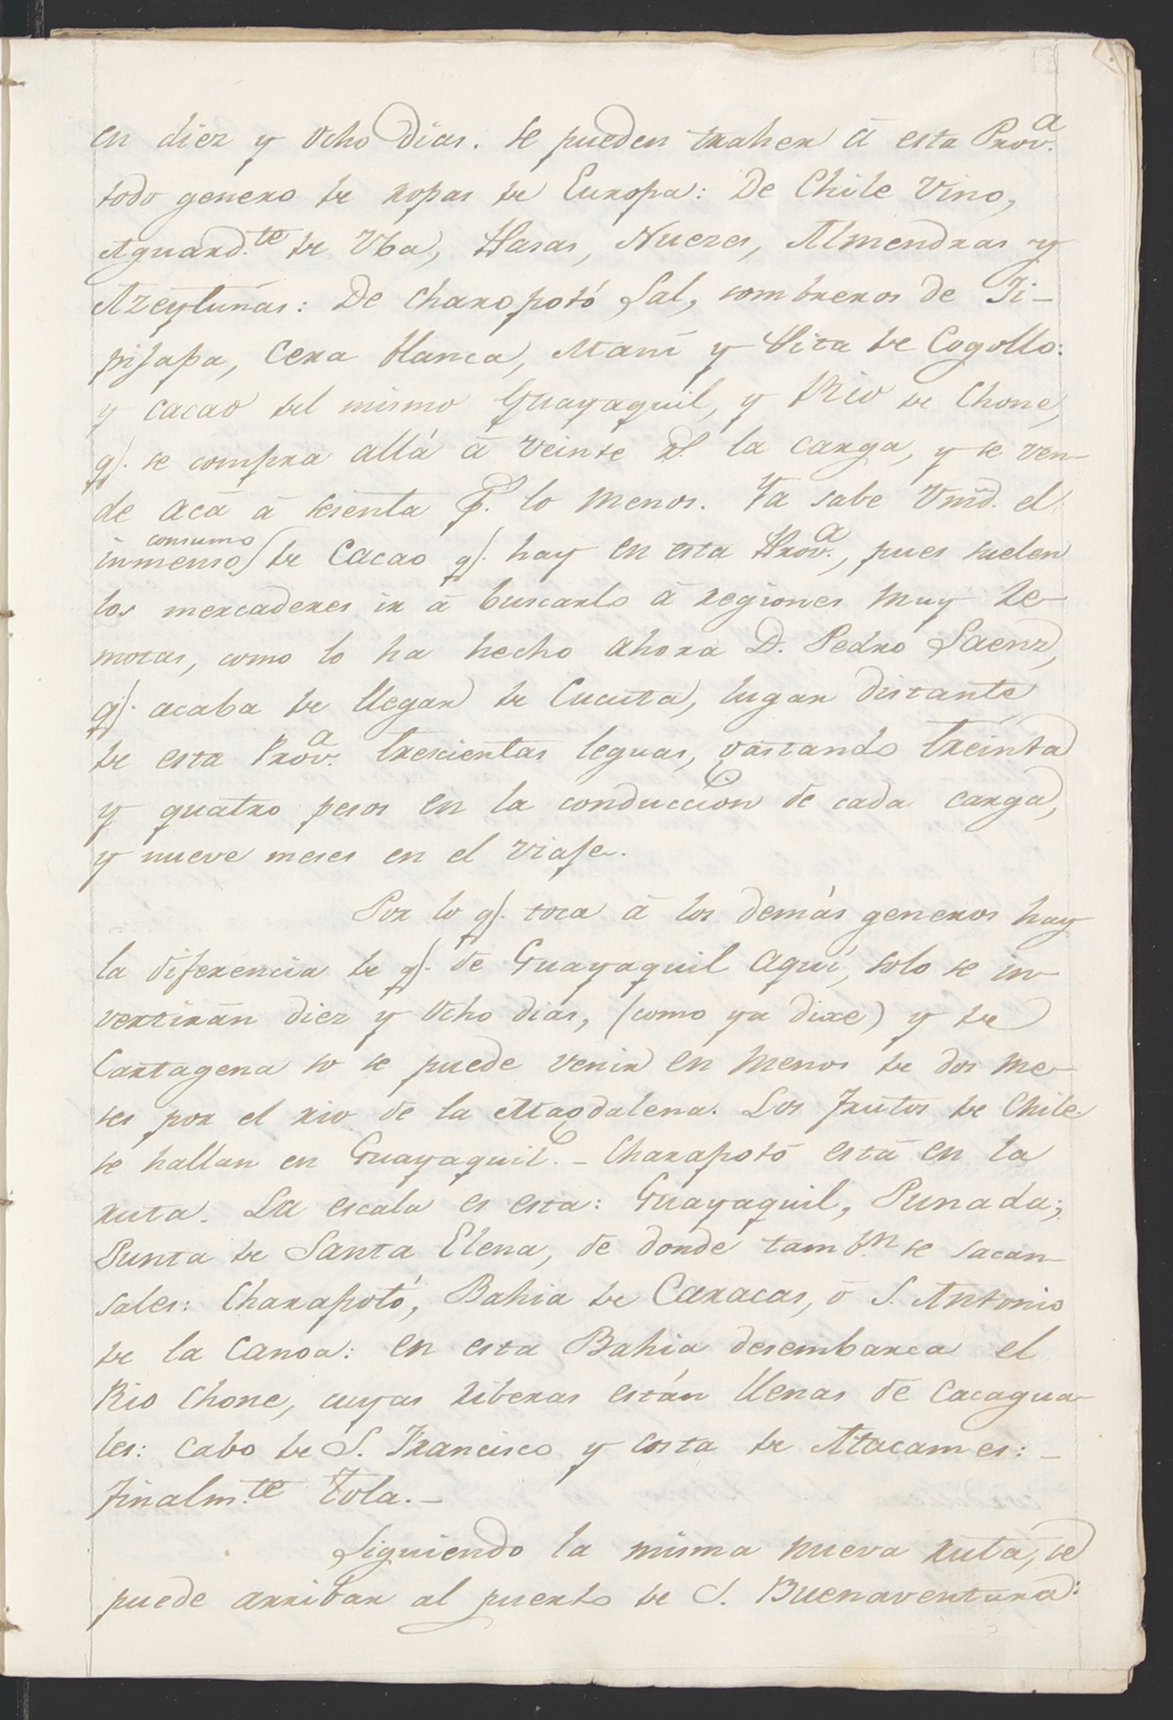 en diez y Ocho Dias. Se pueden traher â esta Prov.ª
todo genero de ropas de Europa: De Chile Vino,
Aguard.te de Vba, Pasas, Nuezes, Almendras y
Azeytunas: De Charopotó Sal, sombreros de Ji-
pijapa, Cera blanca, Maní y Pita de Cogollo:
y cacao del mismo Guayaquil, y Rio de Chone,
q.e se compra allá â veinte r.s la carga, y se ven-
de acâ â sesenta p.r lo menos. Ya sabe Vmd. el
consumo
inmenso de Cacao q.e hay en esta Prov.ª, pues suelen
los mercaderes ir â buscarlo â regiones muy re-
motas, como lo ha hecho ahora D. Pedro Saenz,
q.e acaba de llegar de Cucuta, lugar distante
de esta Prov.ª trescientas leguas, gastando treinta
y quatro pesos en la conduccion de cada carga,
y nueve meses en el viaje.
Por lo q.e toca â los demás generos hay
la diferencia de q.e de Guayaquil aquí, solo se in-
vertirán diez y Ocho dias, (como ya dixe) y de
Cartagena no se puede venir en menos de dos me-
ses por el rio de la Magdalena. Los frutos de Chile
se hallan en Guayaquil. - Charapotó está en la
ruta. La escala es esta: Guayaquil, Punada;
Punta de Santa Elena, de donde tamb.n se sacan
sales: Charapotó, Bahia de Caracas, ô S. Antonio
de la Canoa: en esta Bahia desembarca el
Rio Chone, cuyas riberas están llenas de Cacagua-
les: Cabo de S. Francisco y costa de Atacames: -
finalm.te Tola. -
Siguiendo la misma nueva ruta, se
puede arribar al puerto de S. Buenaventura: